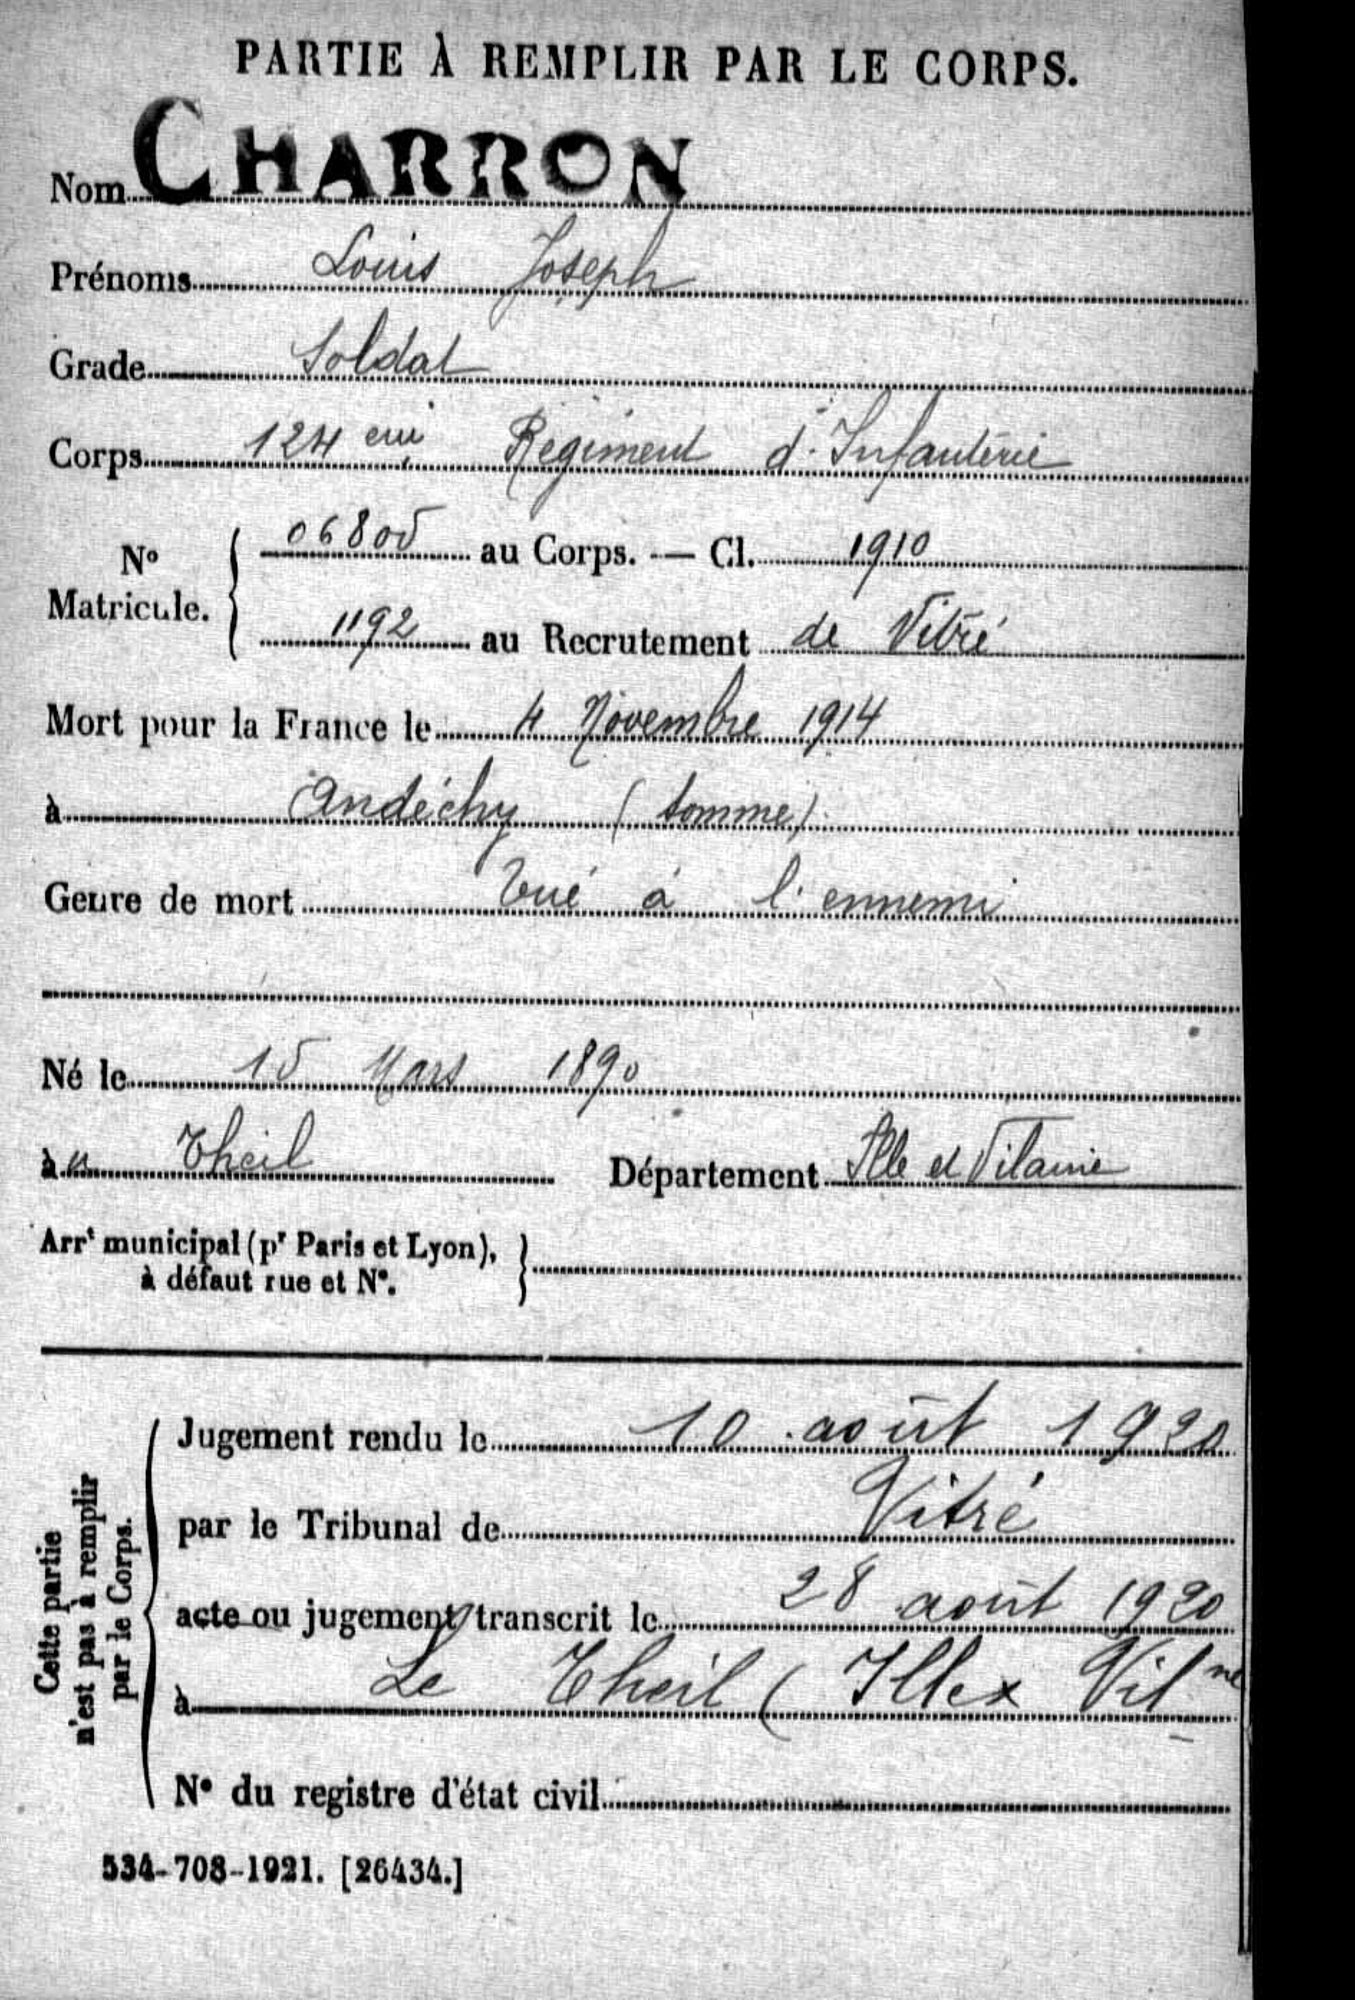 PARTIE À REMPLIR PAR LE CORPS.
Nom CHARRON
Prénoms Louis Joseph
Grade Soldat
Corps 124 eme Régiment d'Infanterie
N° Matricule. { 06805 au Corps. — Cl. 1910
1192 au Recrutement de Vitré
Mort pour la France le 4 Novembre 1914
à Andéchy (Somme)
Genre de mort Tué à l'ennemi
Né le 15 Mars 1890
à u Theil Département Ille et Vilaine
Arrt municipal (pr Paris et Lyon), à défaut rue et N°. }
Cette partie n'est pas à remplir par le Corps.
Jugement rendu le 10 août 1920
par le Tribunal de Vitré
acte ou jugement transcrit le 28 août 1920
à Le Theil (Ille x Vilne
N° du registre d'état civil
534-708-1921. [26434.]